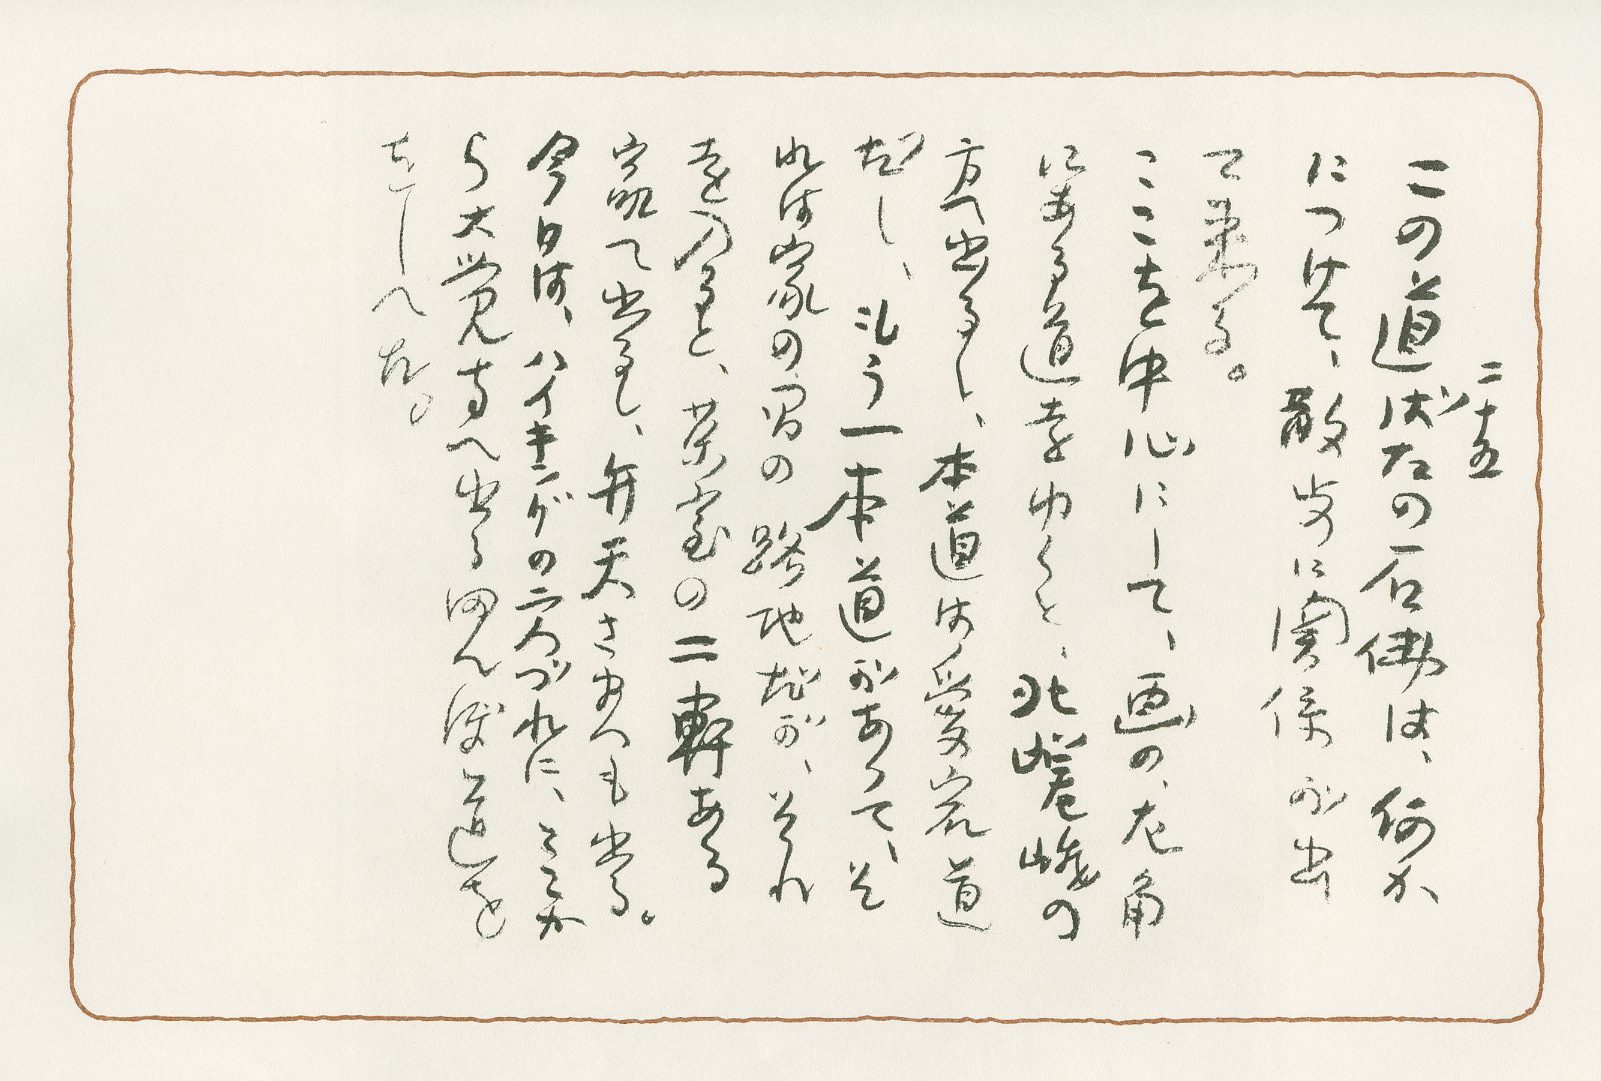 二十五
この道ばたの石佛は、何か
につけて、散歩に関係が出
て来る。
ここを中心にして、画の、左角
にある道を ゆくと、北嵯峨の
方へ出るし、本道は愛宕道
だし、もう一本道があって、そ
れは家の間の 路地だが、それ
を のると、茶室の二軒ある
家 て出るし、弁天さまへも出る。
今日は、ハイキングの二人づれに、ここか
ら大覚寺へ出る田んぼ道を
をしへた。